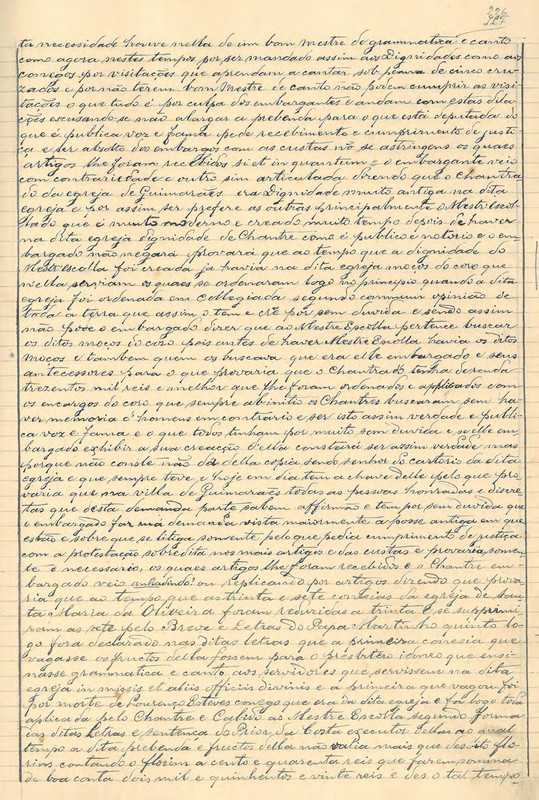 226
227
ta necessidade houve nella de um bom mestre de grammatica e canto
como agora nestes tempos por ser mandado assim aos Dignidades como aos
conegos por visitações que aprendam a cantar sob penna de cinco cru-
zados e por não terem bom Mestre de canto não podem cumprir as visi-
tações o que tudo é por culpa dos embargantes e andam com estas dila-
ções escusando-se não alargar a prebenda para o que está deputada do
que é publica voz e fama pede recebimento e cumprimento de justi-
ça e ser absolto dos embargos com as custas não se astringens os quaes
artigos lhe foram recebidos si et in quantum e o embargante veio
com contrariedade e outro sim articulada dizendo que o chantra-
do da egreja de Guimarães era Dignidade muito antiga na dita
egreja e por assim ser prefere as outras principalmente o Mestreesco-
lado que é muito moderno e creado muito tempo depois de haver
na dita egreja dignidade de Chantre como é publico e notorio e o em-
bargado não negará provará que ao tempo que a dignidade do
Mestreescolla foi creada já havia na dita egreja moços do coro que
nella serviam os quaes se ordenaram logo no principio quando a dita
egreja foi ordenada em collegiada segundo commum opinião de
toda a terra que assim o tem e crê por sem duvida e sendo assim
não pode o embargado dizer que ao Mestre Escolla pertence buscar
os ditos moços do coro pois antes de haver Mestre Escolla havia os ditos
moços e tambem quem os buscava que era elle embargado e seus
antecessores para o que provaria que o Chantrado tinha de renda
trezentos mil reis e melhor que lhe foram ordenados e applicados com
os encargos do coro que sempre ab initio os Chantres buscaram sem ha-
ver memoria d'homens em contrario e ser isto assim verdade e publi-
ca voz e fama e o que todos tinham por muito sem duvida e se elle em-
bargado exhibir a sua creação d'ella constará ser assim verdade mas
porque não conste não dá della copia sendo senhor do cartorio da dita
egreja e que sempre teve e hoje em dia tem a chave delle pelo que pro-
varia que na villa de Guimarães todas as pessoas honradas e discre-
tas que desta demanda parte sabem affirmão e tem por sem duvida que
o embargado faz má demanda vista maiormente a posse antiga em que
estão e sobre que se litiga somente pelo que pedia cumprimento de justiça
com a protestação sobredita nos mais artigos e das custas e provaria somen-
te o necessario, os quaes artigos lhe foram recebidos e o Chantre em-
bargado veio replicando por artigos dizendo que prova-
ria que ao tempo que as trinta e sete conesias da egreja de San-
ta Maria da Oliveira foram reduzidas a trinta e se supprimi-
ram as sete pelo Breve e Letras do Papa Martinho quinto lo-
go fora declarado nas ditas letras que a primeira conesia que
vagasse os fructos della fossem para o presbitero idoneo que ensi-
nasse grammatica e canto aos servidores que servissem na dita
egreja in missis et aliis officiis divinis e a primeira que vagou foi
por morte de Lourenço Esteves conego que era da dita egreja e foi logo toda
aplicada pelo Chantre e Cabido ao Mestre Escolla segundo forma
das ditas Letras e sentença do Prior da Costa executor dellas ao qual
tempo a dita prebenda e fructos della não valia mais que dezoito flo-
rins contando o florim a cento e quarenta reis que fazem somma
de boa conta dois mil e quinhentos e vinte reis e des o tal tempo